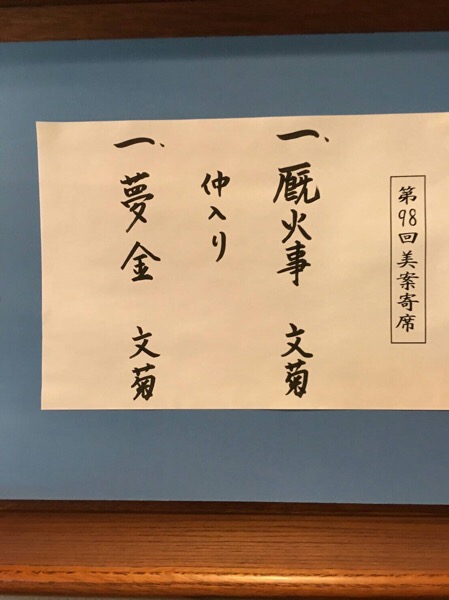 第98回美案寄席
一、厩火事 文菊
仲入り
一、夢金 文菊